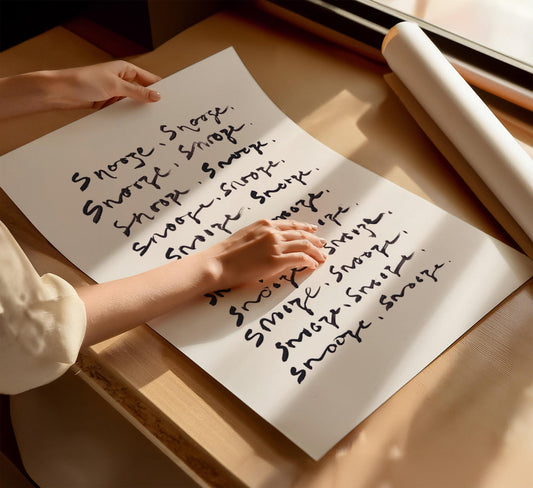 Snooze, Snooze.
Snooze, Snooze.
Snooze, Snooze.
Snooze, Snooze.
Snooze, Snooze.
Snooze, Snooze.
Snooze, Snooze.
Snooze, Snooze.
Snooze, Snooze.